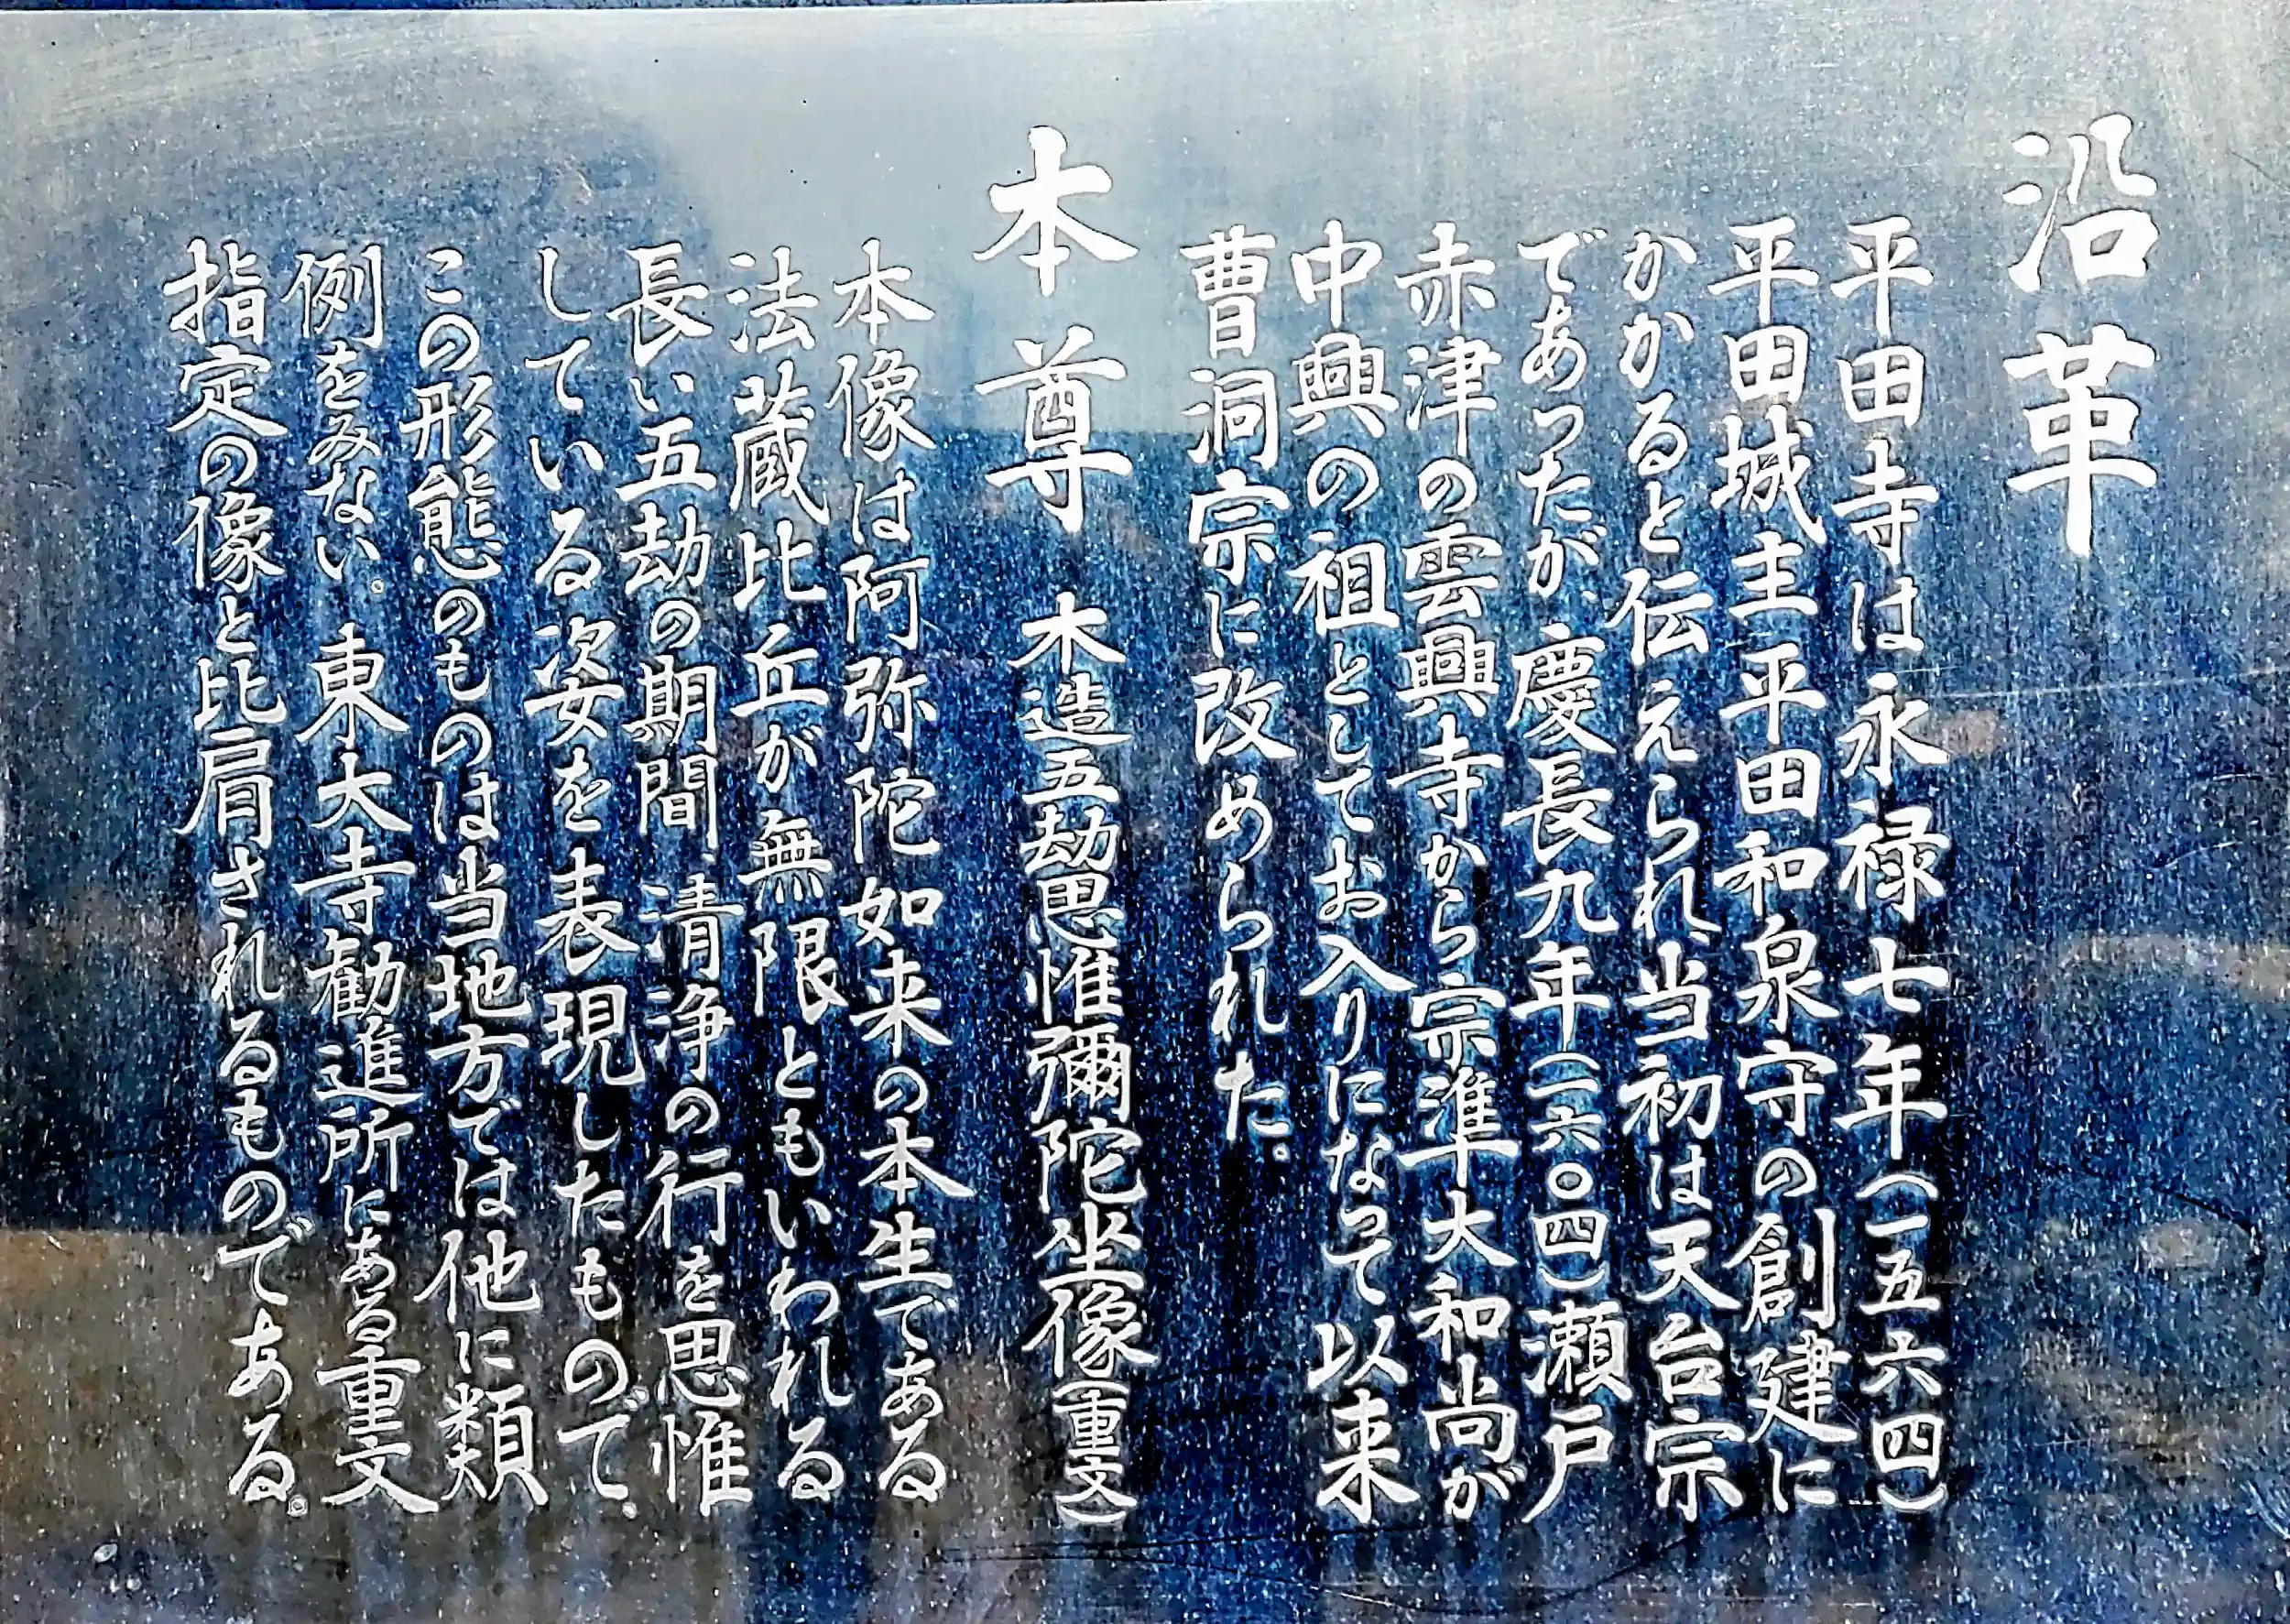 沿革
平田寺は永禄七年(一五六四)
平田城主平田和泉守の創建に
かかると伝えられ、当初は天台宗
であったが、慶長九年(一六〇四)瀬戸
赤津の雲興寺から宗準大和尚が
中興の祖としてお入りになって以来
曹洞宗に改められた。
本尊 木造五劫思惟彌陀坐像(重文)
本像は阿弥陀如来の本生である
法蔵比丘が無限ともいわれる
長い五劫の期間、清浄の行を思惟
している姿を表現したもので、
この形態のものは当地方では他に類
例をみない。東大寺勧進所にある重文
指定の像と比肩されるものである。